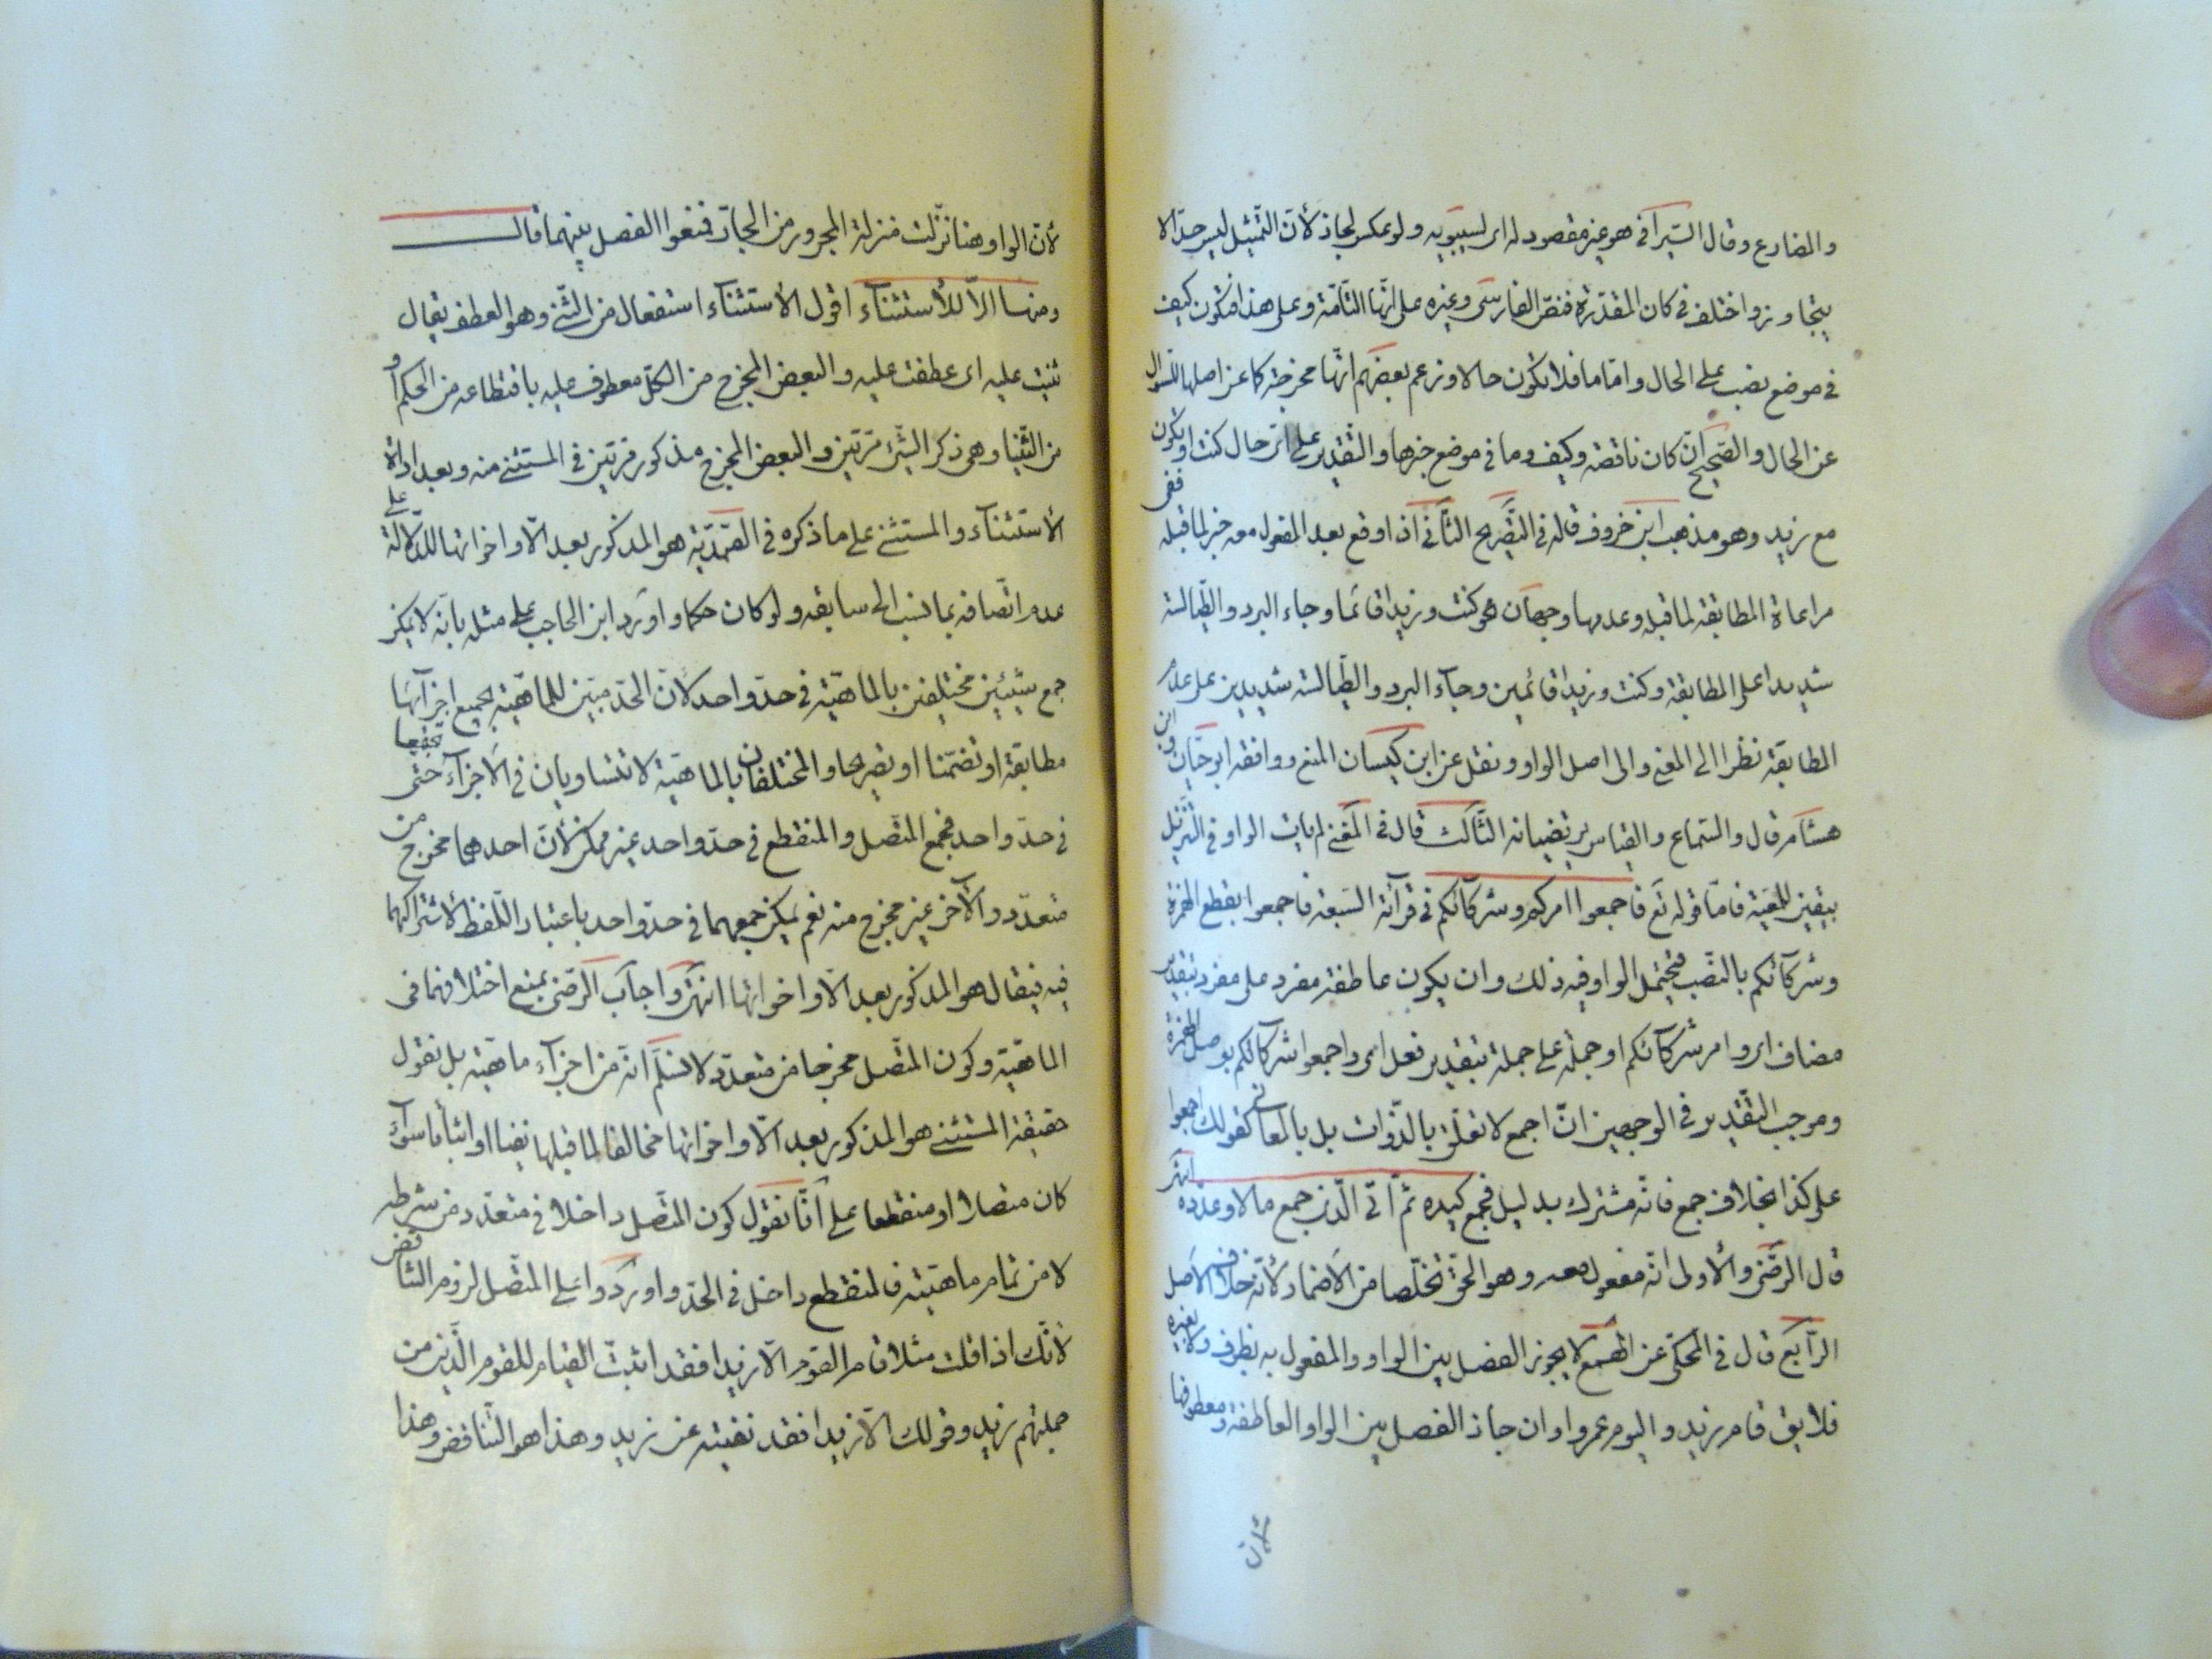 والمضارع وقال السّيرافى هو غير مقصود له اى لسيبويه ولو عكس لجاز لأنّ التّمثيل ليس حدّا لا
يتجاوز واختلف فى كان المقدّرة فنصّ الفارسى وغيره على انّها التّامّة وعلى هذا فتكون كيف
فى موضع نصب على الحال وامّا ما فلا تكون حالا وزعم بعضهم انّها مخرجة عن اصلها للسّوال
عن الحال والصّحيح انّ كان ناقصة وكيف وما فى موضع خبرها والتّقدير على اىّ حال كنت او تكون
مع زيد وهو مذهب ابن خروف قاله فى التّصريح الثّانى اذا وقع بعد المفعول معه خبر لما قبله ففى
مراعاة المطابقة لما قبله وعدمها وجهان هو كنت وزيدا قائما وجاء البرد والطّيالسة
شديدا على المطابقة وكنت وزيدا قائمين وجآء البرد والطّيالسة شديدين على عدم
المطابقة نظرا الى المعنى والى اصل الواو ونقل عن ابن كيسان المنع ووافقه ابو حيّان وابن
هشام قال والسّماع والقياس يرتضيانه الثّالث قال فى المغنى لم يات الواو فى التّنزيل
بيقين للمعيّة فامّا قوله تع فاجمعوا امركم وشركآئكم فى قرآئة السّبعة فاجمعوا بقطع الهمزة
وشركآئكم بالنصّب فيحتمل الواو فيه ذلك وان يكون عاطفة مفرد على مفرد بتقدير
مضاف اى وامر شركآئكم او جملة على جملة بتقدير فعل اى واجمعوا شركآئكم بوصل الهمزة
وموجب التّقدير فى الوجهين انّ اجمع لا تعلّق بالذّوات بل بالمعانى كقولك اجمعوا
على كذا بخلاف جمع فانّه مشترك بدليل فجمع كيده ثمّ اتى الّذى جمع مالا وعدّده انتهى
قال الرضّى والأولى انّه مفعول معه وهو الحقّ تخلّصا من الأضمار لأنّه خلاف الأصل
الرّابع قال فى المحكىّ عن الهمع لا يجوز الفصل بين الواو والمفعول به بظرف ولا بغيره
فلا يق قام زيد واليوم عمروا وان جاز الفصل بين الواو العاطفة ومعطوفها
لأنّ الواو هنا نزّلت منزلة المجرور من الجارّ فمنعوا الفصل بينهما قال
ومنها الاّ للأستثنآء اقول الأستثنآء استفعال من الثّنى وهو العطف يقال
ثنيت عليه اى عطفت عليه والبعض المخرج من الكلّ معطوف عليه باقتطاعه من الحكم او
من الثّنيا وهى ذكر الشّئ مرّتين والبعض المخرج مذكور مرّتين فى المستثنى منه وبعد اداة
الأستثنآء والمستثنى على ما ذكره فى الصّمديّة هو المذكور بعد الاّ واخواتها للدّلالة على
عدم اتّصافه بما نسب الى سابقه ولو كان حكما واورد ابن الحاجب على مثله بانّه لا يمكن
جمع شيئين مختلفين بالماهيّة فى حدّ واحد لأنّ الحدّ مبيّن للماهيّة بجميع اجزآئها
مطابقة او تضمّنا او تصريحا والمختلفان بالماهيّة لا تتساويان فى الأجزآء حتّى تجتمعا
فى حدّ واحد فجمع المتّصل والمنقطع فى حدّ واحد غير ممكن لأنّ احدهما مخرج من
متعدّد والآخر غير مخرج منه نعم يمكن جمعهما فى حدّ واحد باعتبار اللّفظ لأشتراكهما
فيه فيقال هو المذكور بعد الاّ واخواتها انتهى واجاب الرضّى بمنع اختلافهما فى
الماهيّة وكون المتّصل مخرجا من متعدّد لا نسلّم انّه من اجزآء ماهيّته بل نقول
حقيقة المستثنى هو المذكور بعد الاّ واخواتها مخالفا لما قبلها نفيا او اثباتا سوآء
كان متصلا او منقطعا على انّا نقول كون المتّصل داخلا فى متعدّد من شرطه
لا من تمام ماهيّته فالمنقطع داخل فى الحدّ واوردوا على المتّصل لزوم التناقض
لأنّك اذا قلت مثلا قام القوم الاّ زيدا فقد اثبتّ القيام للقوم الّذين من
جملتهم زيد وقولك الاّ زيدا فقد نفيته عن زيد وهذا هو التّناقض وهذا